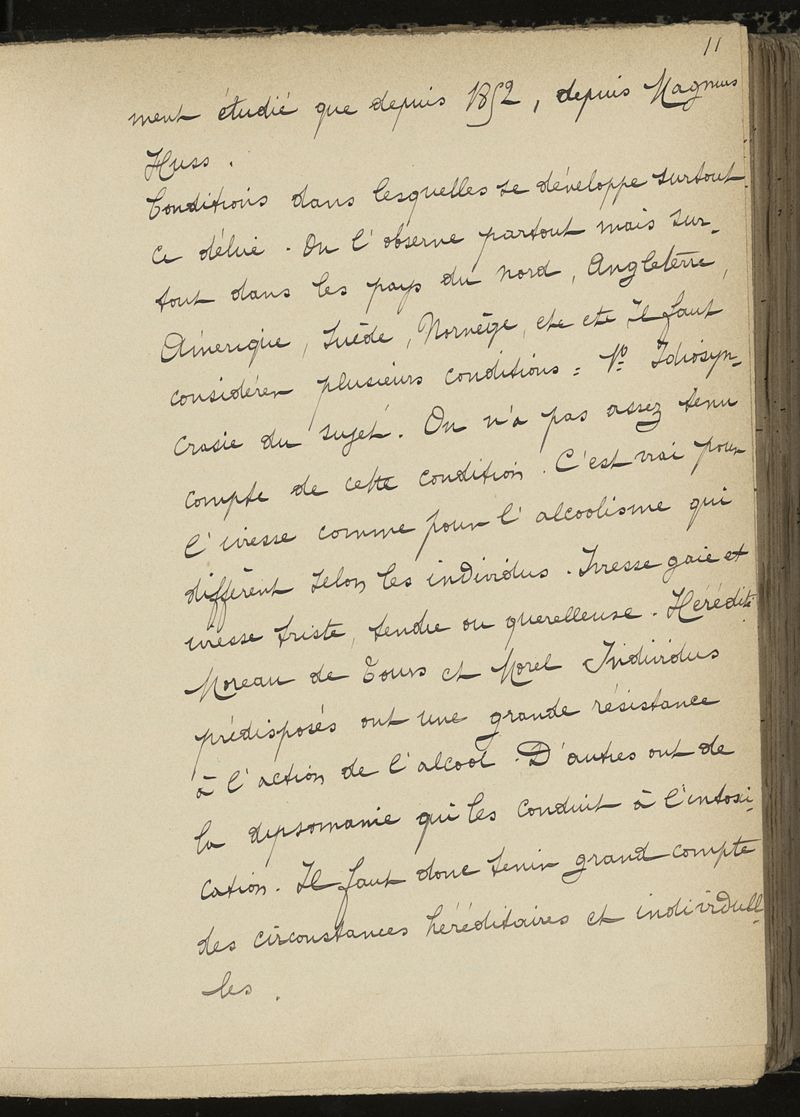 11
ment étudié que depuis 1852, depuis Magnus
Huss.
Conditions dans lesquelles se développe surtout
ce délire. On l'observe partout mais sur-
tout dans les pays du nord, Angleterre,
Amérique, Suède, Norvège, etc etc Il faut
considérer plusieurs conditions = 1º Idiosyn-
crasie du sujet. On n'a pas assez tenu
compte de cette condition. C'est vrai pour
l'ivresse comme pour l'alcoolisme qui
diffèrent selon les individus. Ivresse gaie et
ivresse triste, tendre ou querelleuse. Hérédité
Moreau de Tours et Morel Individus
prédisposés ont une grande résistance
à l'action de l'alcool. D'autres ont de
la dipsomanie qui les conduit à l'intoxi-
cation. Il faut donc tenir grand compte
des circonstances héréditaires et individuel-
les.